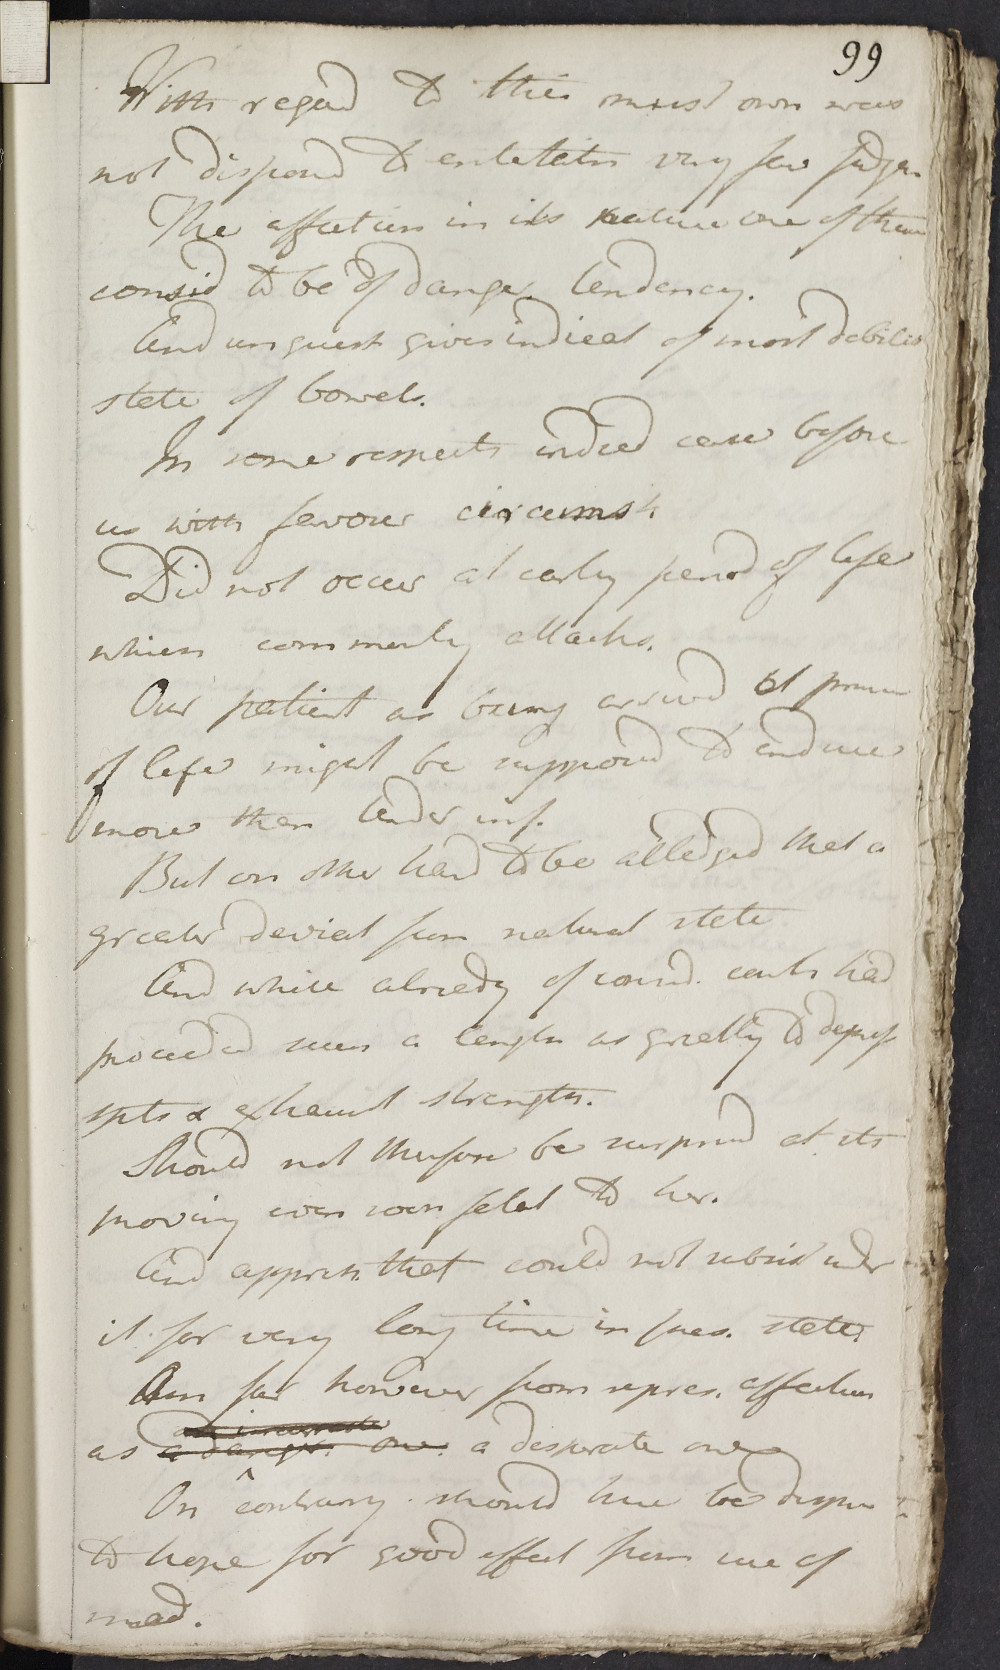 99
With regard to this must own was
not disposd to entertain very fav judgm.
The affection in its nature one of them
consid to be of danger. tendency.
And unquest gives indicat of most debilit
state of bowels.
In some respects indeed case before
us with favour circumst
Did not occur at early period of life
when commonly attacks.
Our patient as being arrived at prime
of life might be supposd to endure
more than tender inf.
But on other hand to be alledged that a
greater deviat from natural state
And while already of consid. contin had
proceeded such a length as greatly to depress
spts & exhaust strength.
Should not therefore be surprisd at its
proving even soon fatal to her.
And appreh. that could not subsist under
it for very long time in pres. state.
Am far however from repres. affection
as a danger. one a desperate one
On contrary should have been dispos
to hope for good effect from use of
med.